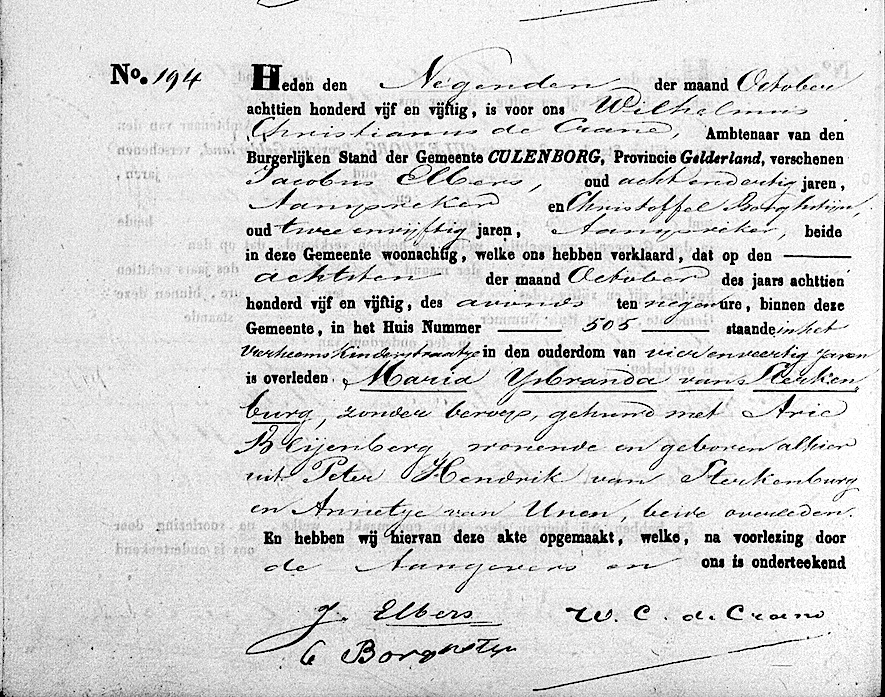 No. 194 Heden den Negenden der maand October
achttien honderd vijf en vijftig, is voor ons Wilhelmus
Christianus de Crane, Ambtenaar van den
Burgerlijken Stand der Gemeente CULENBORG, Provincie Gelderland, verschenen
Jacobus Elbers, oud achtendertig jaren,
Aanspreker en Christoffel Borghstijn,
oud tweeenvijftig jaren, Aanspreker, beide
in deze Gemeente woonachtig, welke ons hebben verklaard, dat op den
achtsten der maand October des jaars achttien
honderd vijf en vijftig, des avonds ten negen ure, binnen deze
Gemeente, in het Huis Nummer 505 staande in het
in den ouderdom van vierenveertig jaren
is overleden Maria Ysbranda van Sterken
burg, zonder beroep, gehuwd met Arie
Bleijenberg, wonende en geboren alhier
uit Peter Hendrik van Sterkenburg
en Annetje van Unen, beide overleden.
En hebben wij hiervan deze akte opgemaakt, welke, na voorlezing door
de Aangevers en ons is onderteekend
J. Elbers W. C. de Crane
C Borghstijn